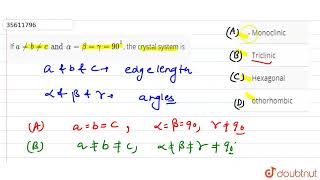 35611796
If a ≠ b ≠ c and α = β = γ = 90°, the crystal system is
(A) Monoclinic
(B) Triclinic
(C) Hexagonal
(D) othorhombic
a & b & c → edge length
α & β & γ → angles
(A) a = b = c , α = β = 90, γ ≠ 90
(B) a ≠ b ≠ c, α ≠ β ≠ γ ≠ 90
doubtnut